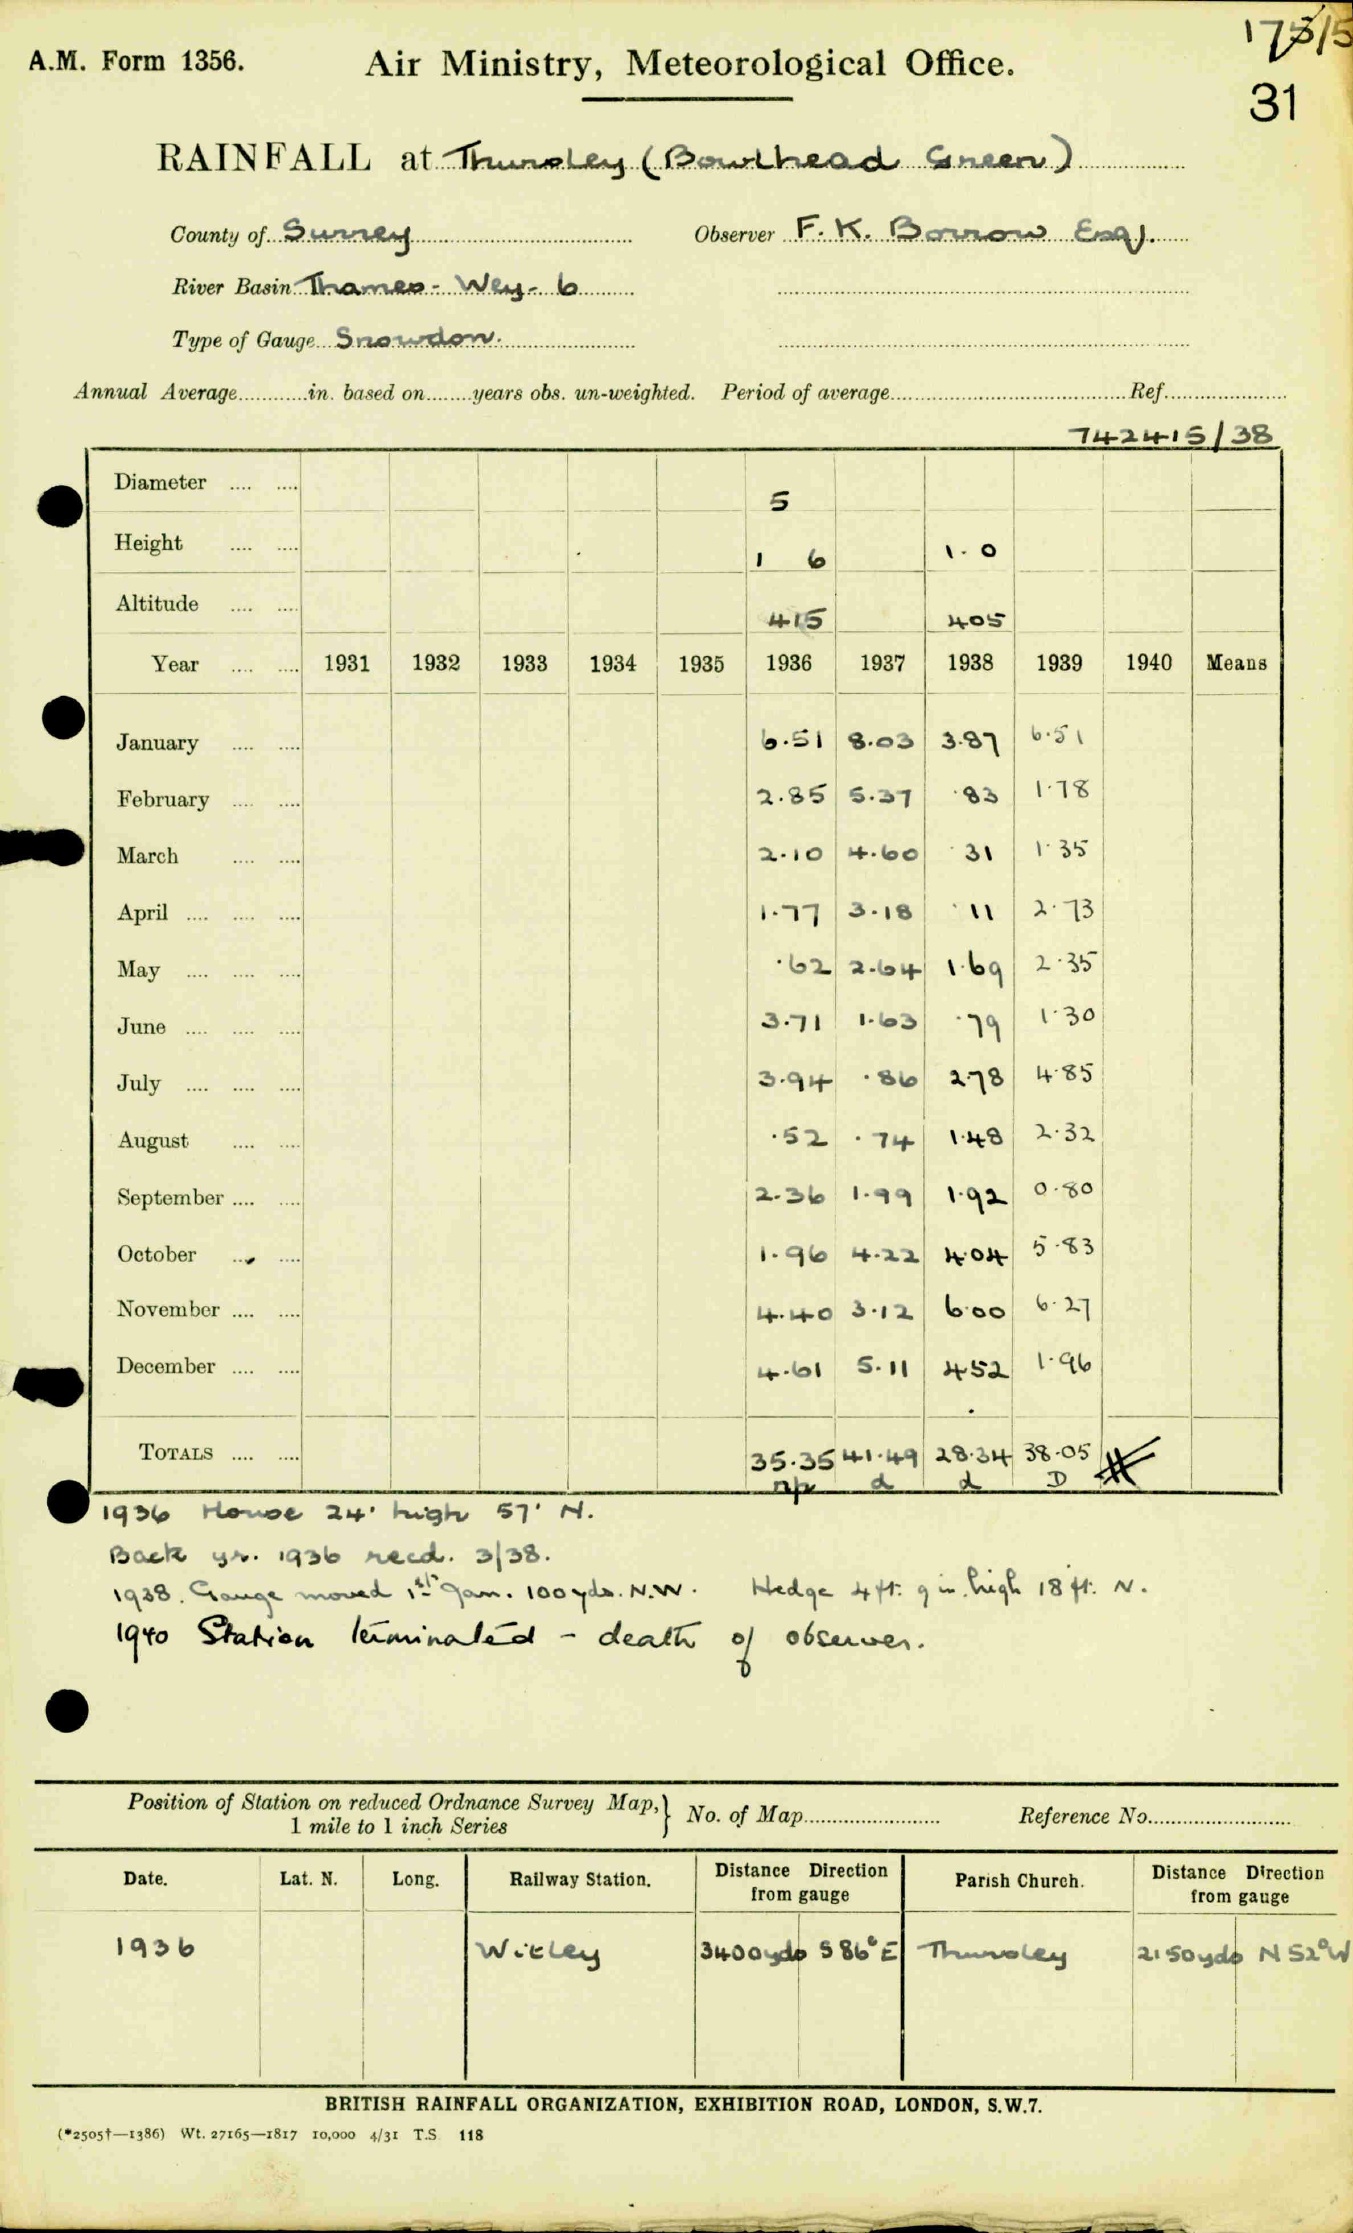 175/5
A.M. Form 1356.
Air Ministry, Meteorological Office.
31
RAINFALL at Thursley (Bowlhead Green)
County of Surrey Observer F. K. Borrow Esq.
River Basin Thames - Wey - 6
Type of Gauge Snowdon.
Annual Average............in. based on........years obs. un-weighted. Period of average............ Ref............
742415/38
Diameter .... .... 5
Height .... .... 1 6 1.0
Altitude .... .... 415 405
Year .... .... 1931 1932 1933 1934 1935 1936 1937 1938 1939 1940 Means
January .... .... 6.51 8.03 3.87 6.51
February .... .... 2.85 5.37 .83 1.78
March .... .... 2.10 4.60 .31 1.35
April .... .... .... 1.77 3.18 .11 2.73
May .... .... .... .62 2.64 1.69 2.35
June .... .... .... 3.71 1.63 .79 1.30
July .... .... .... 3.94 .86 2.78 4.85
August .... .... .52 .74 1.48 2.32
September .... .... 2.36 1.99 1.92 0.80
October .... .... 1.96 4.22 4.04 5.83
November .... .... 4.40 3.12 6.00 6.27
December .... .... 4.61 5.11 4.52 1.96
TOTALS .... .... 35.35 41.49 28.34 38.05
np d d D
1936 House 24' high 57' N.
Back yr. 1936 recd. 3/38.
1938. Gauge moved 1st Jan. 100 yds. N.W. Hedge 4 ft. 9 in. high 18 ft. N.
1940 Station terminated - death of observer.
Position of Station on reduced Ordnance Survey Map, } No. of Map............ Reference No............
1 mile to 1 inch Series
Date. Lat. N. Long. Railway Station. Distance Direction from gauge Parish Church. Distance Direction from gauge
1936 Witley 3400 yds S 86° E Thursley 2150 yds N 52° W
BRITISH RAINFALL ORGANIZATION, EXHIBITION ROAD, LONDON, S.W.7.
(*2505†—1386) Wt. 27165—1817 10,000 4/31 T.S. 118